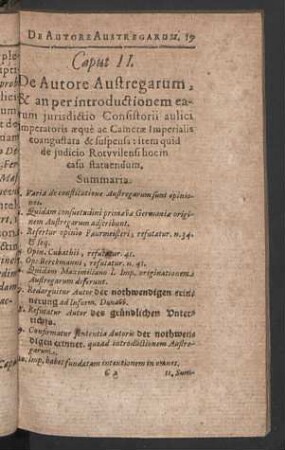 DE AUTORE AUSTREGARUM. 19
Caput II.
De Autore Austregarum,
& an per introductionem ea-
rum jurisdictio Consistorii aulici
Imperatoris æquè ac Cameræ Imperialis
coangustata & suspensa: item quid
de judicio Rotvvilensi hoc in
casu statuendum.
Summaria.
1. Variæ de constitutione Austregarum sunt opinio-
nes.
2. Quidam consuetudini primævæ Germaniæ origi-
nem Austregarum adscribunt.
3. Refertur opinio Paurmeisteri, refutatur. n. 34.
& seq.
4. Opin. Cubathii, refutatur. 41.
5. Op. Borchmanni, refutatur. n. 41.
6. Quidam Maximiliano I. Imp. originationem
Austregarum deferunt.
7. Redarguitur Autor der nothwendigen erin-
nerung ad Inform. Dunavv.
8. Refutatur Autor des gründlichen Unter-
richts.
9. Confirmatur sententia Autoris der nothwen-
digen erinner. quoad introductionem Austre-
garum.
10. Imp. habet fundatam intentionem in omnes.
C 2 11. Sum-